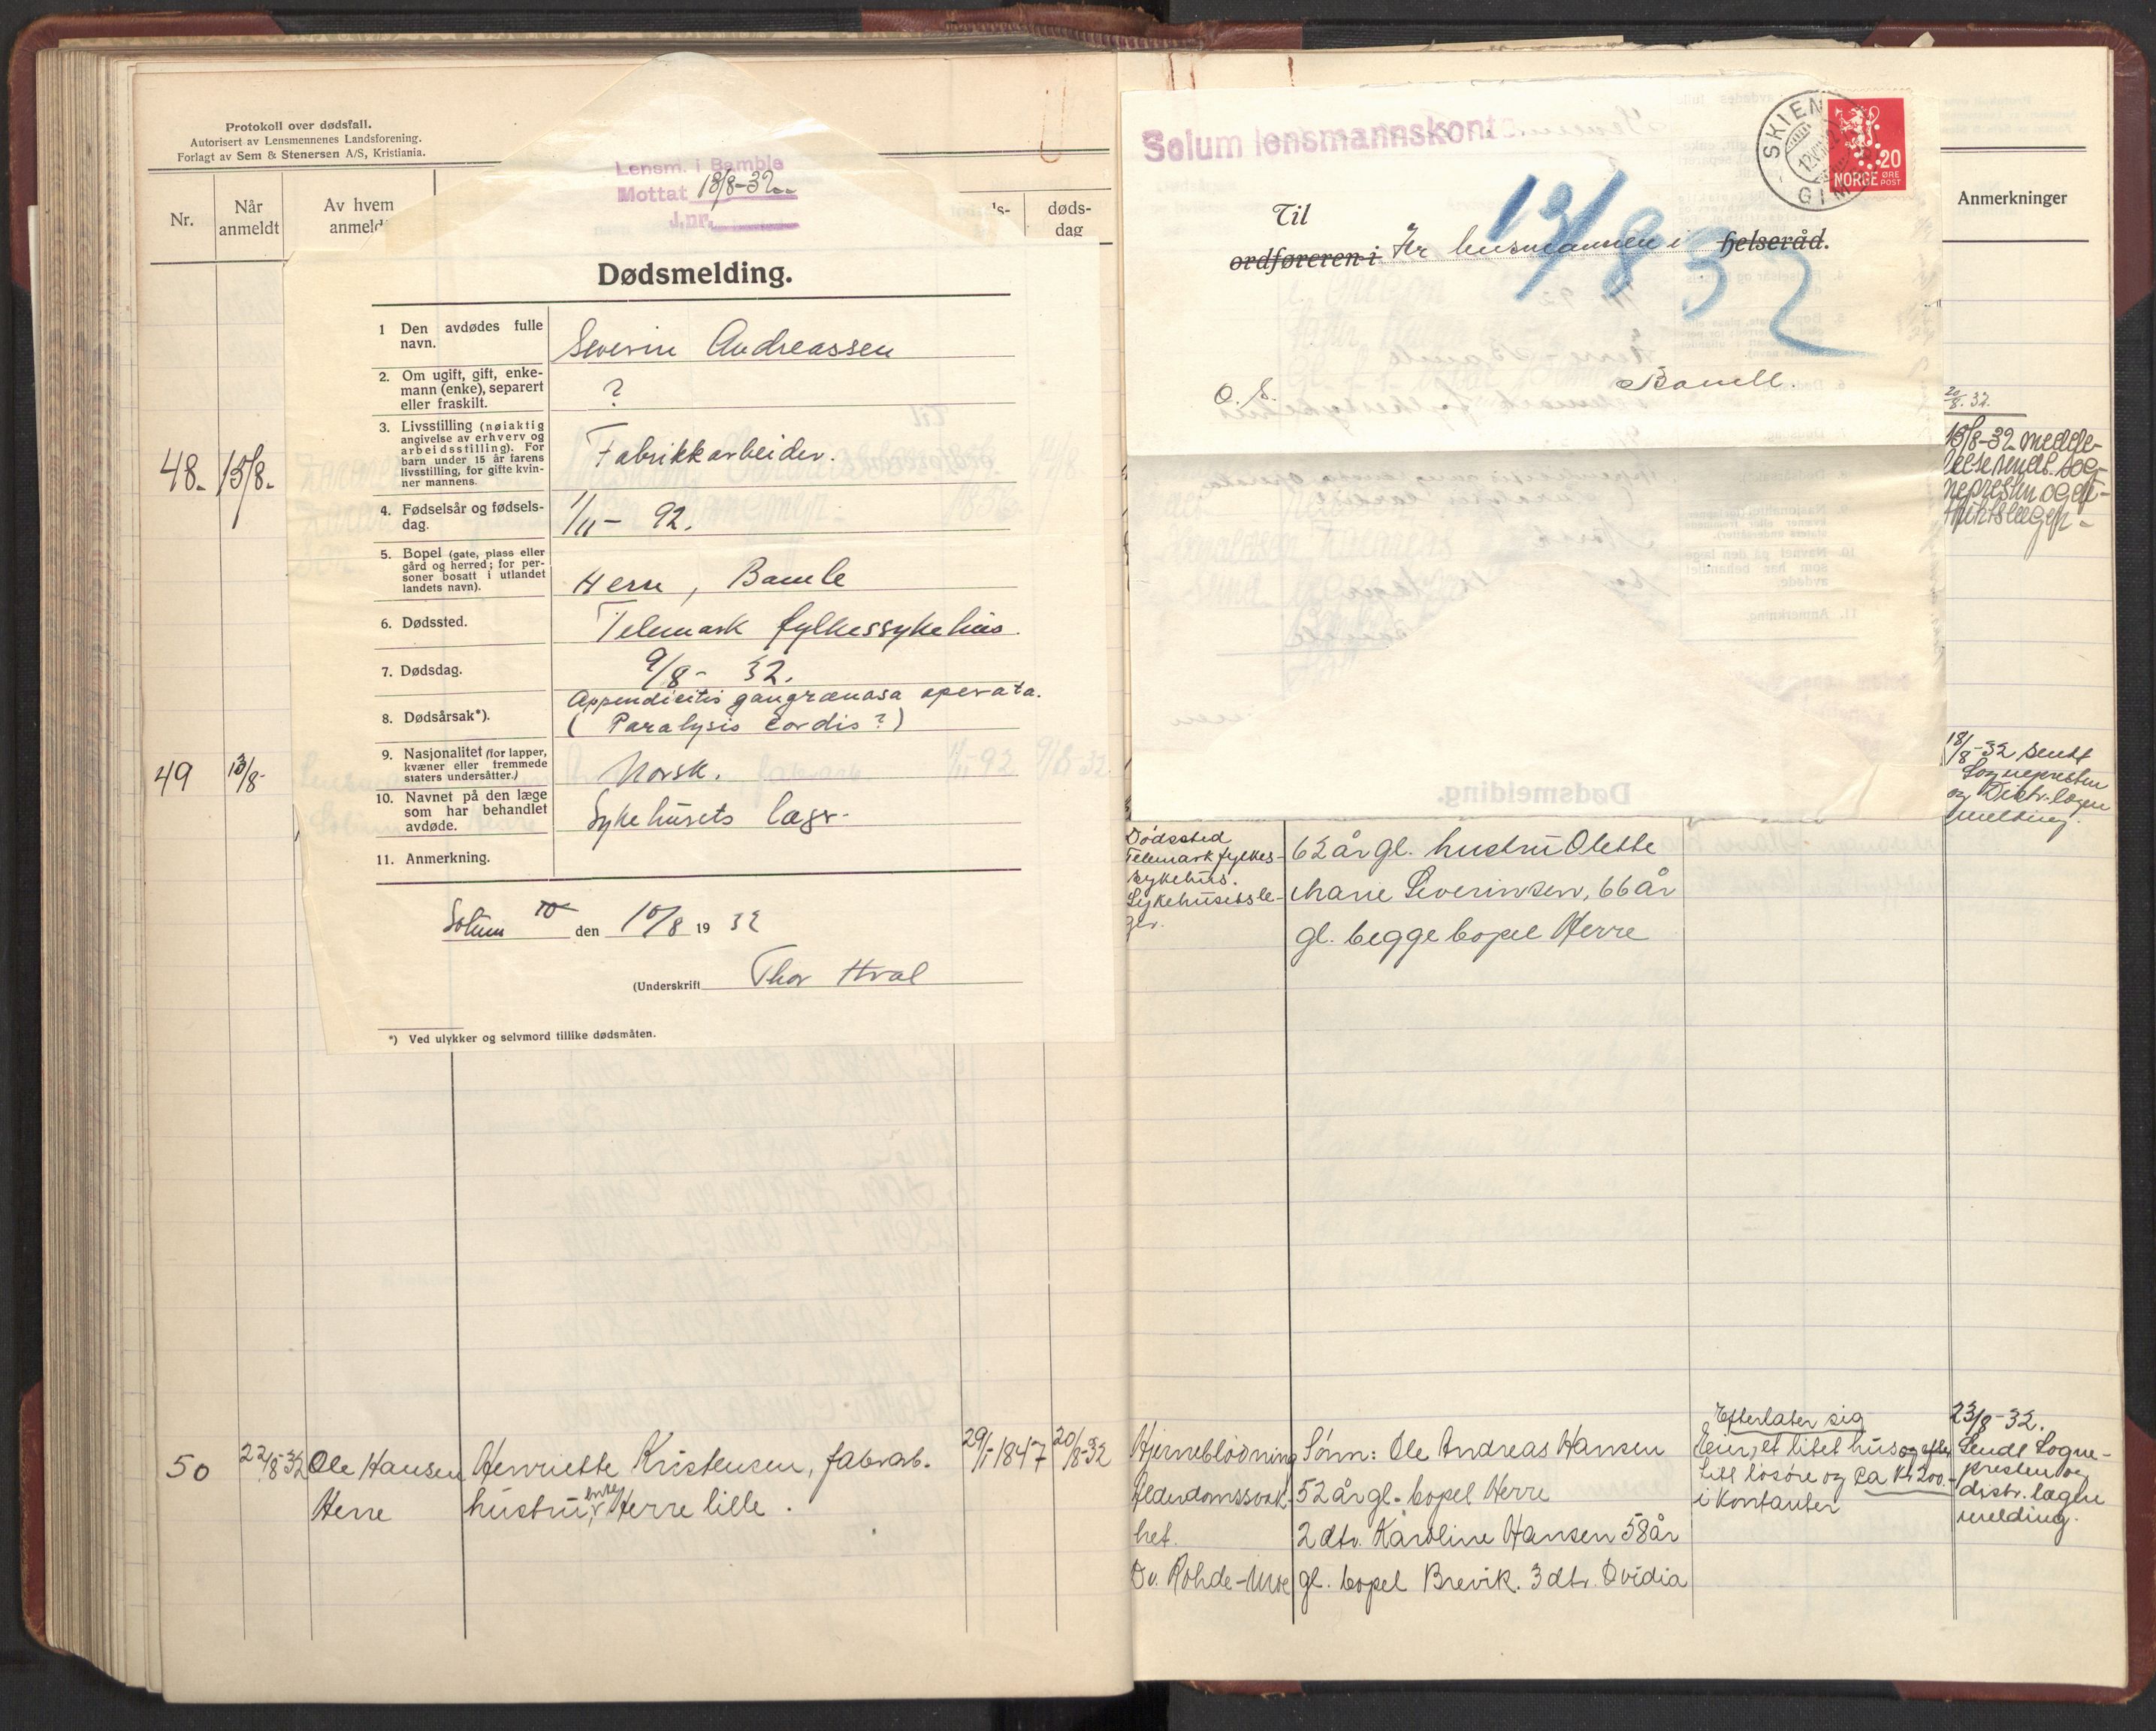 Protokoll over dødsfall.
Autorisert av Lensmennenes Landsforening.
Forlagt av Sem & Stenersen A/S, Kristiania.
Nr.
Når
anmeldt
Av hvem
døds-
dag
Lensm. i Bamble
Mottat 18/8-32
J.nr.
Dødsmelding.
1 Den avdødes fulle
navn.
Severin Andreassen
2. Om ugift, gift, enke-
mann (enke), separert
eller fraskilt.
?
3. Livsstilling (nøiaktig
angivelse av erhverv og
arbeidsstilling). For
barn under 15 år farens
livsstilling, for gifte kvin-
ner mannens.
Fabrikkarbeider.
4. Fødselsår og fødsels-
dag.
1/11 - 92.
5. Bopel (gate, plass eller
gård og herred; for per-
soner bosatt i utlandet
landets navn).
Herre, Bamle
6. Dødssted.
Telemark fylkessykehus.
7. Dødsdag.
9/8 - 32.
8. Dødsårsak*).
Appendicitis gangrænosa operata.
(Paralysis cordis?)
9. Nasjonalitet (for lapper,
kvæner eller fremmede
staters undersåtter.)
Norsk.
10. Navnet på den læge
som har behandlet
avdøde.
Sykehusets læger.
11. Anmerkning.
Solum den 10/8 19 32
(Underskrift Thor Hval
*) Ved ulykker og selvmord tillike dødsmåten.
48. 15/8.
49 13/8-
50 22/8-32 Ole Hansen Henriette Kristensen, fabrarb. 29/1-1847 20/8-32
Herre hustru, enke Herre lille.
Solum lensmannskontor
SKIEN
GIM
NORGE 20 ØRE
POST
Til
ordføreren i Hr lensmannen i helseråd.
13/8 32
O. S. Bamble.
Anmerkninger
20/8. 32.
15/8-32 meddel-
else sendt sog-
nepresten og di-
striktslægen -
18/8-32 sendt
Sognepresten
og Distr. lægen
melding.
Dødssted
Telemark fylkes-
sykehus.
Sykehusets læ-
ger.
62 år gl. hustru Olette
Marie Severinsen, 66 år
gl. begge bopel Herre
Hjerneblødning
Alderdomssvak-
het.
Dr. Rohde-Moe
Sønn: Ole Andreas Hansen
52 år gl. bopel Herre
2 dtr. Karoline Hansen 58 år
gl. bopel Brevik. 3 dtr. Ovidia
Efterlater sig
Eien, et litet hus og efter
litt løsøre og ca kr 200.-
i kontanter
23/8-32.
Sendt Sogne-
presten og
distr. lægen
melding.